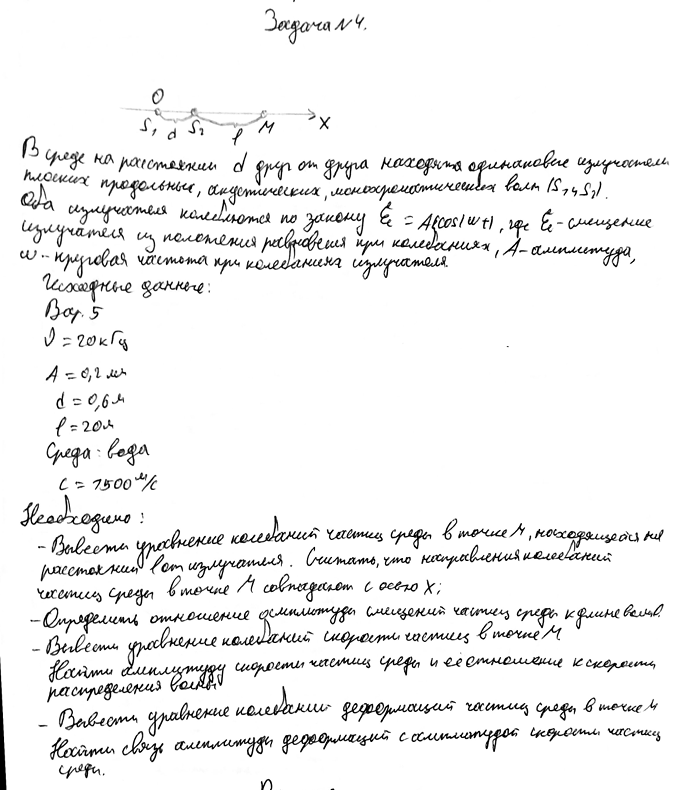 Задача №4.
O
S₁ d S₂ ℓ M X
В среде на расстоянии d друг от друга находятся одинаковые излучатели
плоских продольных, акустических, монохроматических волн (S₁ и S₂).
Оба излучателя колеблются по закону ξ = A cos(ωt), где ξ - смещение
излучателя из положения равновесия при колебаниях, A - амплитуда,
ω - круговая частота при колебаниях излучателя.
Исходные данные:
Вар. 5
ν = 20 кГц
A = 0,2 мм
d = 0,6 м
ℓ = 20 м
Среда: вода
c = 1500 м/с
Необходимо:
- Вывести уравнение колебаний частиц среды в точке M, находящейся на
расстоянии ℓ от излучателя. Считать, что направления колебаний
частиц среды в точке M совпадают с осью X;
- Определить отношение амплитуды смещений частиц среды к длине волны.
- Вывести уравнение колебаний скорости частиц в точке M
Найти амплитуду скорости частиц среды и её отношение к скорости
распределения волны
- Вывести уравнение колебаний деформаций частиц среды в точке M
Найти связь амплитуды деформаций с амплитудой скорости частиц
среды.